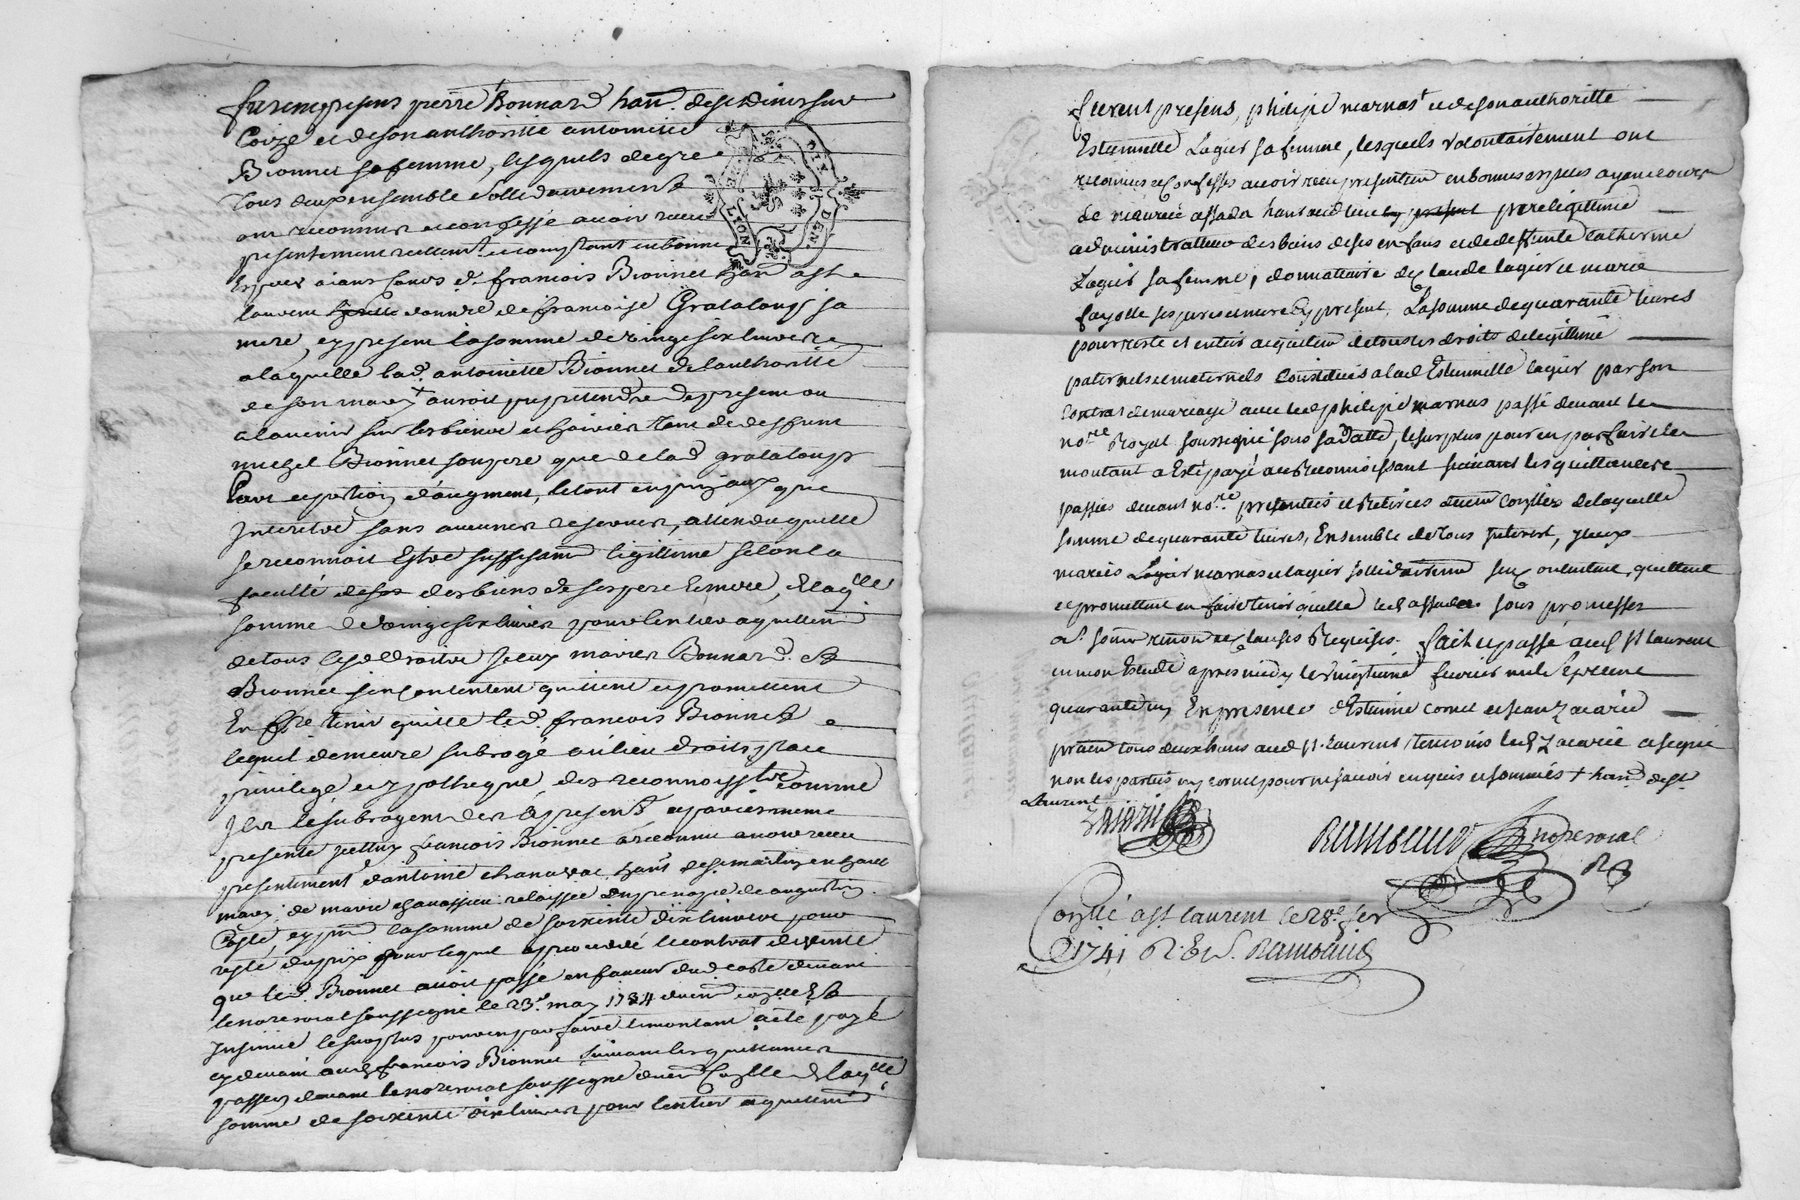 furent presens pierre Bonnard han. de st Denis sur
Coize et de son authorité antoinette
Bionnet sa femme, lesquels de gre
tous deux ensemble sollidairement
ont reconnu et confessé avoir receu
presentement reellemt. et comptant en bonne
especes aiant cours d. francois Bionnet han a st
laurent donnre de francoise Grataloup sa
mere, cy present la somme de vingt six livres
a laquelle lad. antoinette Bionnet de l'authorité
de son mary auroit pu pretendre de present ou
a l'avenir sur les biens et hoiries tant de deffunt
michel Bionnet son pere que de lad grataloup
part et portion d'augment, le tout en principaux que
interetz sans aucunes reserves, attendu quelle
se reconnoit estre suffisam legittimé selon la
faculté de ses des biens de ses pere et mere, de laqlle
somme de vingt six livres pour l'entier aquittemt
de tous lesd droits iceux maries Bonnard et
Bionnet sen contentent quittent et promettent
En fre tenir quitte led. francois Bionnet
lequel demeure subrogé au lieu droits place
privilege et ypotheque, des reconnoisstre comme
ils le subrogent des a presnt, et par ces mesme
presente icelluy francois Bionnet a reconnu avoir receu
presentement d'antoine chanavat hant de st martin en haut
mary de marie chanassieu relaissée en premge de augustin
Coste, cy pnt la somme de soixente dix livres pour
reste du prix pour lequel a procedé le contrat de vente
que led. Bionnet avoit passé en faveur dud coste devant
le nore roial soussigné le 23e may 1734 duem conllé &
Insinué le surplus pour en parfaire le montant a été payé
cy devant aud francois Bionnet suivant les quittances
passées devant le nore roial soussigné duem conllé de laqlle
somme de soixente dix livres pour l'entier aquittemt
furent presens, philipe marnast et de son authoritté
Estiennette Lagier sa femme, lesquels volontairement ont
reconnus et confesses avoir receu presentem en bonnes especes ayant cours
de maurice assada hant aud lieu cy present pere legittime
administratteur des biens de ses enfans et de deffunte Catherine
Lagier sa femme, donnattaire de claude lagier et marie
fayolle ses peres et mere Cy present, La somme de quarante livres
pour reste et entier acquittem de tous les droits de legittime
paternels et maternels Constitués a lad Estiennette lagier par son
contrat de mariage avec led philipe marnas passé devant le
nore Royal soussigné sous sa datte, le surplus pour en parfaire le
montant a esté payé au Reconnoissant suivant les quittances
passées devant nore presentées et Retirées duem conllées de laquelle
somme de quarante livres, Ensemble de tous Interest, yceux
mariés marnas et lagier sollidairemt sen contentent, quittent
et promettent en faire tenir quitte led assada sous promesses
at. soum renon et clauses Requises. fait et passé aud st laurent
en mon Etude apres midy le vingtieme fevrier mil sept cent
quarante un En presence d'Estienne cornet et jean zacarie
praen tous deux hans aud st. laurent, temoins led zacarie a signé
non les parties ny cornet pour ne scavoir enquis et sommés + hand de st
Laurent
Zacarie
Rambaud nore roial
Conllé a st. laurent le 28e fer
1741 R. Rambaud
LYON